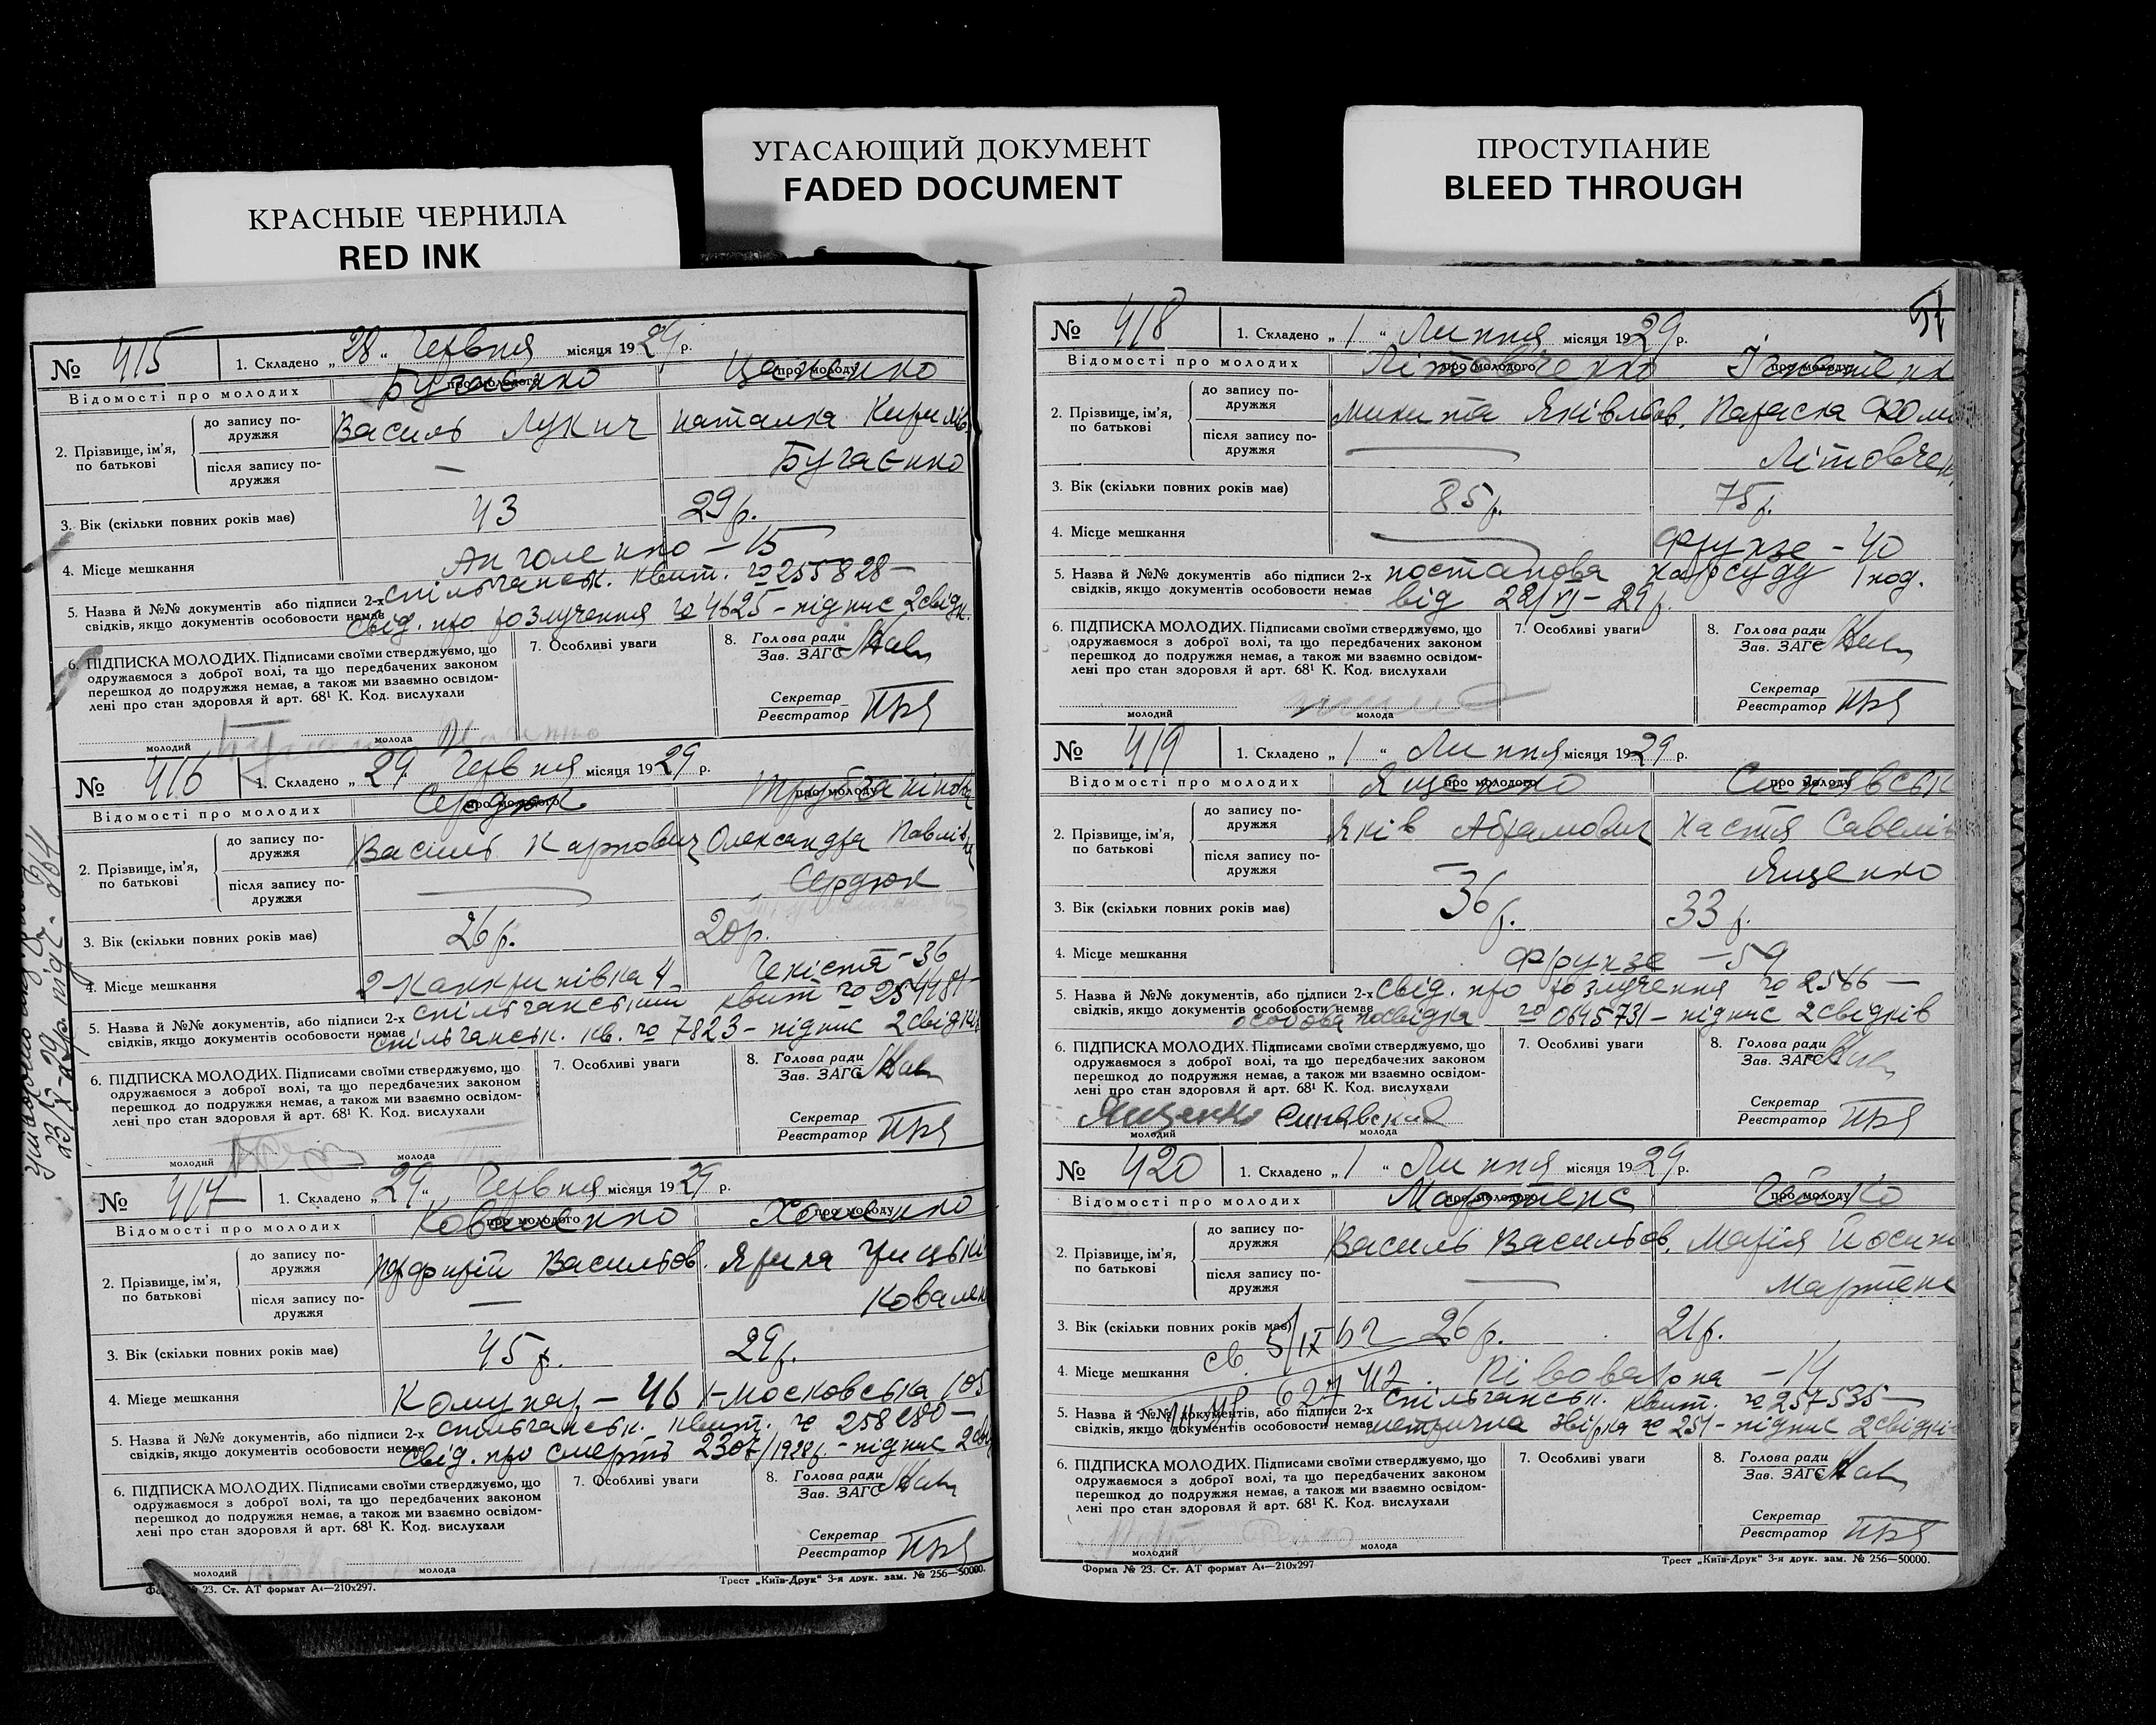 КРАСНЫЕ ЧЕРНИЛА
RED INK
УГАСАЮЩИЙ ДОКУМЕНТ
FADED DOCUMENT
ПРОСТУПАНИЕ
BLEED THROUGH
№ 415 1. Складено „28“ Червня місяця 1929 р.
Відомості про молодих про молодого Бугаєнко про молоду
2. Прізвище, ім'я, по батькові
до запису подружжя Василь Лукич Наталка Кирилів
після запису подружжя — Бугаєнко
3. Вік (скільки повних років має) 43 29 р.
4. Місце мешкання — 15
5. Назва й №№ документів або підписи 2-х свідків, якщо документів особовости немає
спільчанськ. квит. № 255828 —
свід. про розлучення № 4625 — підпис 2 свідк.
6. ПІДПИСКА МОЛОДИХ. Підписами своїми стверджуємо, що
одружаємося з доброї волі, та що передбачених законом
перешкод до подружжя немає, а також ми взаємно освідом-
лені про стан здоровля й арт. 68¹ К. Код. вислухали
молодий молода
7. Особливі уваги
8. Голова ради
Зав. ЗАГС
Секретар
Реєстратор
№ 416 1. Складено „29“ Червня місяця 1929 р.
Відомості про молодих про молодого Сердюк про молоду
2. Прізвище, ім'я, по батькові
до запису подружжя Василь Карпович Олександра Павлівн
після запису подружжя — Сердюк
3. Вік (скільки повних років має) 26 р. 20 р.
4. Місце мешкання 2-Канкринівка 4 Чекістя - 36
5. Назва й №№ документів, або підписи 2-х свідків, якщо документів особовости немає
спільчанський квит №
спільчанськ. кв. № 7823 — підпис 2 свідків
6. ПІДПИСКА МОЛОДИХ. Підписами своїми стверджуємо, що
одружаємося з доброї волі, та що передбачених законом
перешкод до подружжя немає, а також ми взаємно освідом-
лені про стан здоровля й арт. 68¹ К. Код. вислухали
молодий молода
7. Особливі уваги
8. Голова ради
Зав. ЗАГС
Секретар
Реєстратор
№ 417 1. Складено „29“ Червня місяця 1929 р.
Відомості про молодих про молодого Коваленко про молоду Хоменко
2. Прізвище, ім'я, по батькові
до запису подружжя Порфирій Васильов. Ярина Грицькі
після запису подружжя — Ковален
3. Вік (скільки повних років має) 45 р. 29 р.
4. Місце мешкання Комунар. — 46 1-Московська 105
5. Назва й №№ документів, або підписи 2-х свідків, якщо документів особовости немає
спільчанськ. квит. № 258280 —
свід. про смерть 2307/1928 р. — підпис 2 свід
6. ПІДПИСКА МОЛОДИХ. Підписами своїми стверджуємо, що
одружаємося з доброї волі, та що передбачених законом
перешкод до подружжя немає, а також ми взаємно освідом-
лені про стан здоровля й арт. 68¹ К. Код. вислухали
молодий молода
7. Особливі уваги
8. Голова ради
Зав. ЗАГС
Секретар
Реєстратор
№ 23. Ст. АТ формат А₄—210х297.
Трест „Київ-Друк“ 3-я друк. зам. № 256—50000.
№ 418 1. Складено „1“ Липня місяця 1929 р.
Відомості про молодих про молодого Літовченко про молоду
2. Прізвище, ім'я, по батькові
до запису подружжя Микита Яківлєв. Параска Хоми
після запису подружжя — Літовчен
3. Вік (скільки повних років має) 85 р. 75 р.
4. Місце мешкання — Фрунзе - 40
5. Назва й №№ документів або підписи 2-х свідків, якщо документів особовости немає
постанова нарсуду
від
6. ПІДПИСКА МОЛОДИХ. Підписами своїми стверджуємо, що
одружаємося з доброї волі, та що передбачених законом
перешкод до подружжя немає, а також ми взаємно освідом-
лені про стан здоровля й арт. 68¹ К. Код. вислухали
молодий молода
7. Особливі уваги
8. Голова ради
Зав. ЗАГС
Секретар
Реєстратор
№ 419 1. Складено „1“ Липня місяця 1929 р.
Відомості про молодих про молодого Ященко про молоду
2. Прізвище, ім'я, по батькові
до запису подружжя Яків Абрамович Настя Савелів
після запису подружжя — Ященко
3. Вік (скільки повних років має) 36 р. 33 р.
4. Місце мешкання Фрунзе — 59
5. Назва й №№ документів, або підписи 2-х свідків, якщо документів особовости немає
свід. про розлучення № 2566 —
особова посвідка № 0645731 — підпис 2 свідків
6. ПІДПИСКА МОЛОДИХ. Підписами своїми стверджуємо, що
одружаємося з доброї волі, та що передбачених законом
перешкод до подружжя немає, а також ми взаємно освідом-
лені про стан здоровля й арт. 68¹ К. Код. вислухали
Ященко
молодий молода
7. Особливі уваги
8. Голова ради
Зав. ЗАГС
Секретар
Реєстратор
№ 420 1. Складено „1“ Липня місяця 1929 р.
Відомості про молодих про молодого Мартенс про молоду
2. Прізвище, ім'я, по батькові
до запису подружжя Василь Васильов. Марія Йосип
після запису подружжя — Мартенс
3. Вік (скільки повних років має) 26 р. 21 р.
4. Місце мешкання Півоварона — 14
5. Назва й №№ документів, або підписи 2-х свідків, якщо документів особовости немає
спільчанськ. квит. № 257535 —
метрична звірка № 251 — підпис 2 свідків
6. ПІДПИСКА МОЛОДИХ. Підписами своїми стверджуємо, що
одружаємося з доброї волі, та що передбачених законом
перешкод до подружжя немає, а також ми взаємно освідом-
лені про стан здоровля й арт. 68¹ К. Код. вислухали
молодий молода
7. Особливі уваги
8. Голова ради
Зав. ЗАГС
Секретар
Реєстратор
Форма № 23. Ст. АТ формат А₄—210х297
Трест „Київ-Друк“ 3-я друк. зам. № 256—50000.